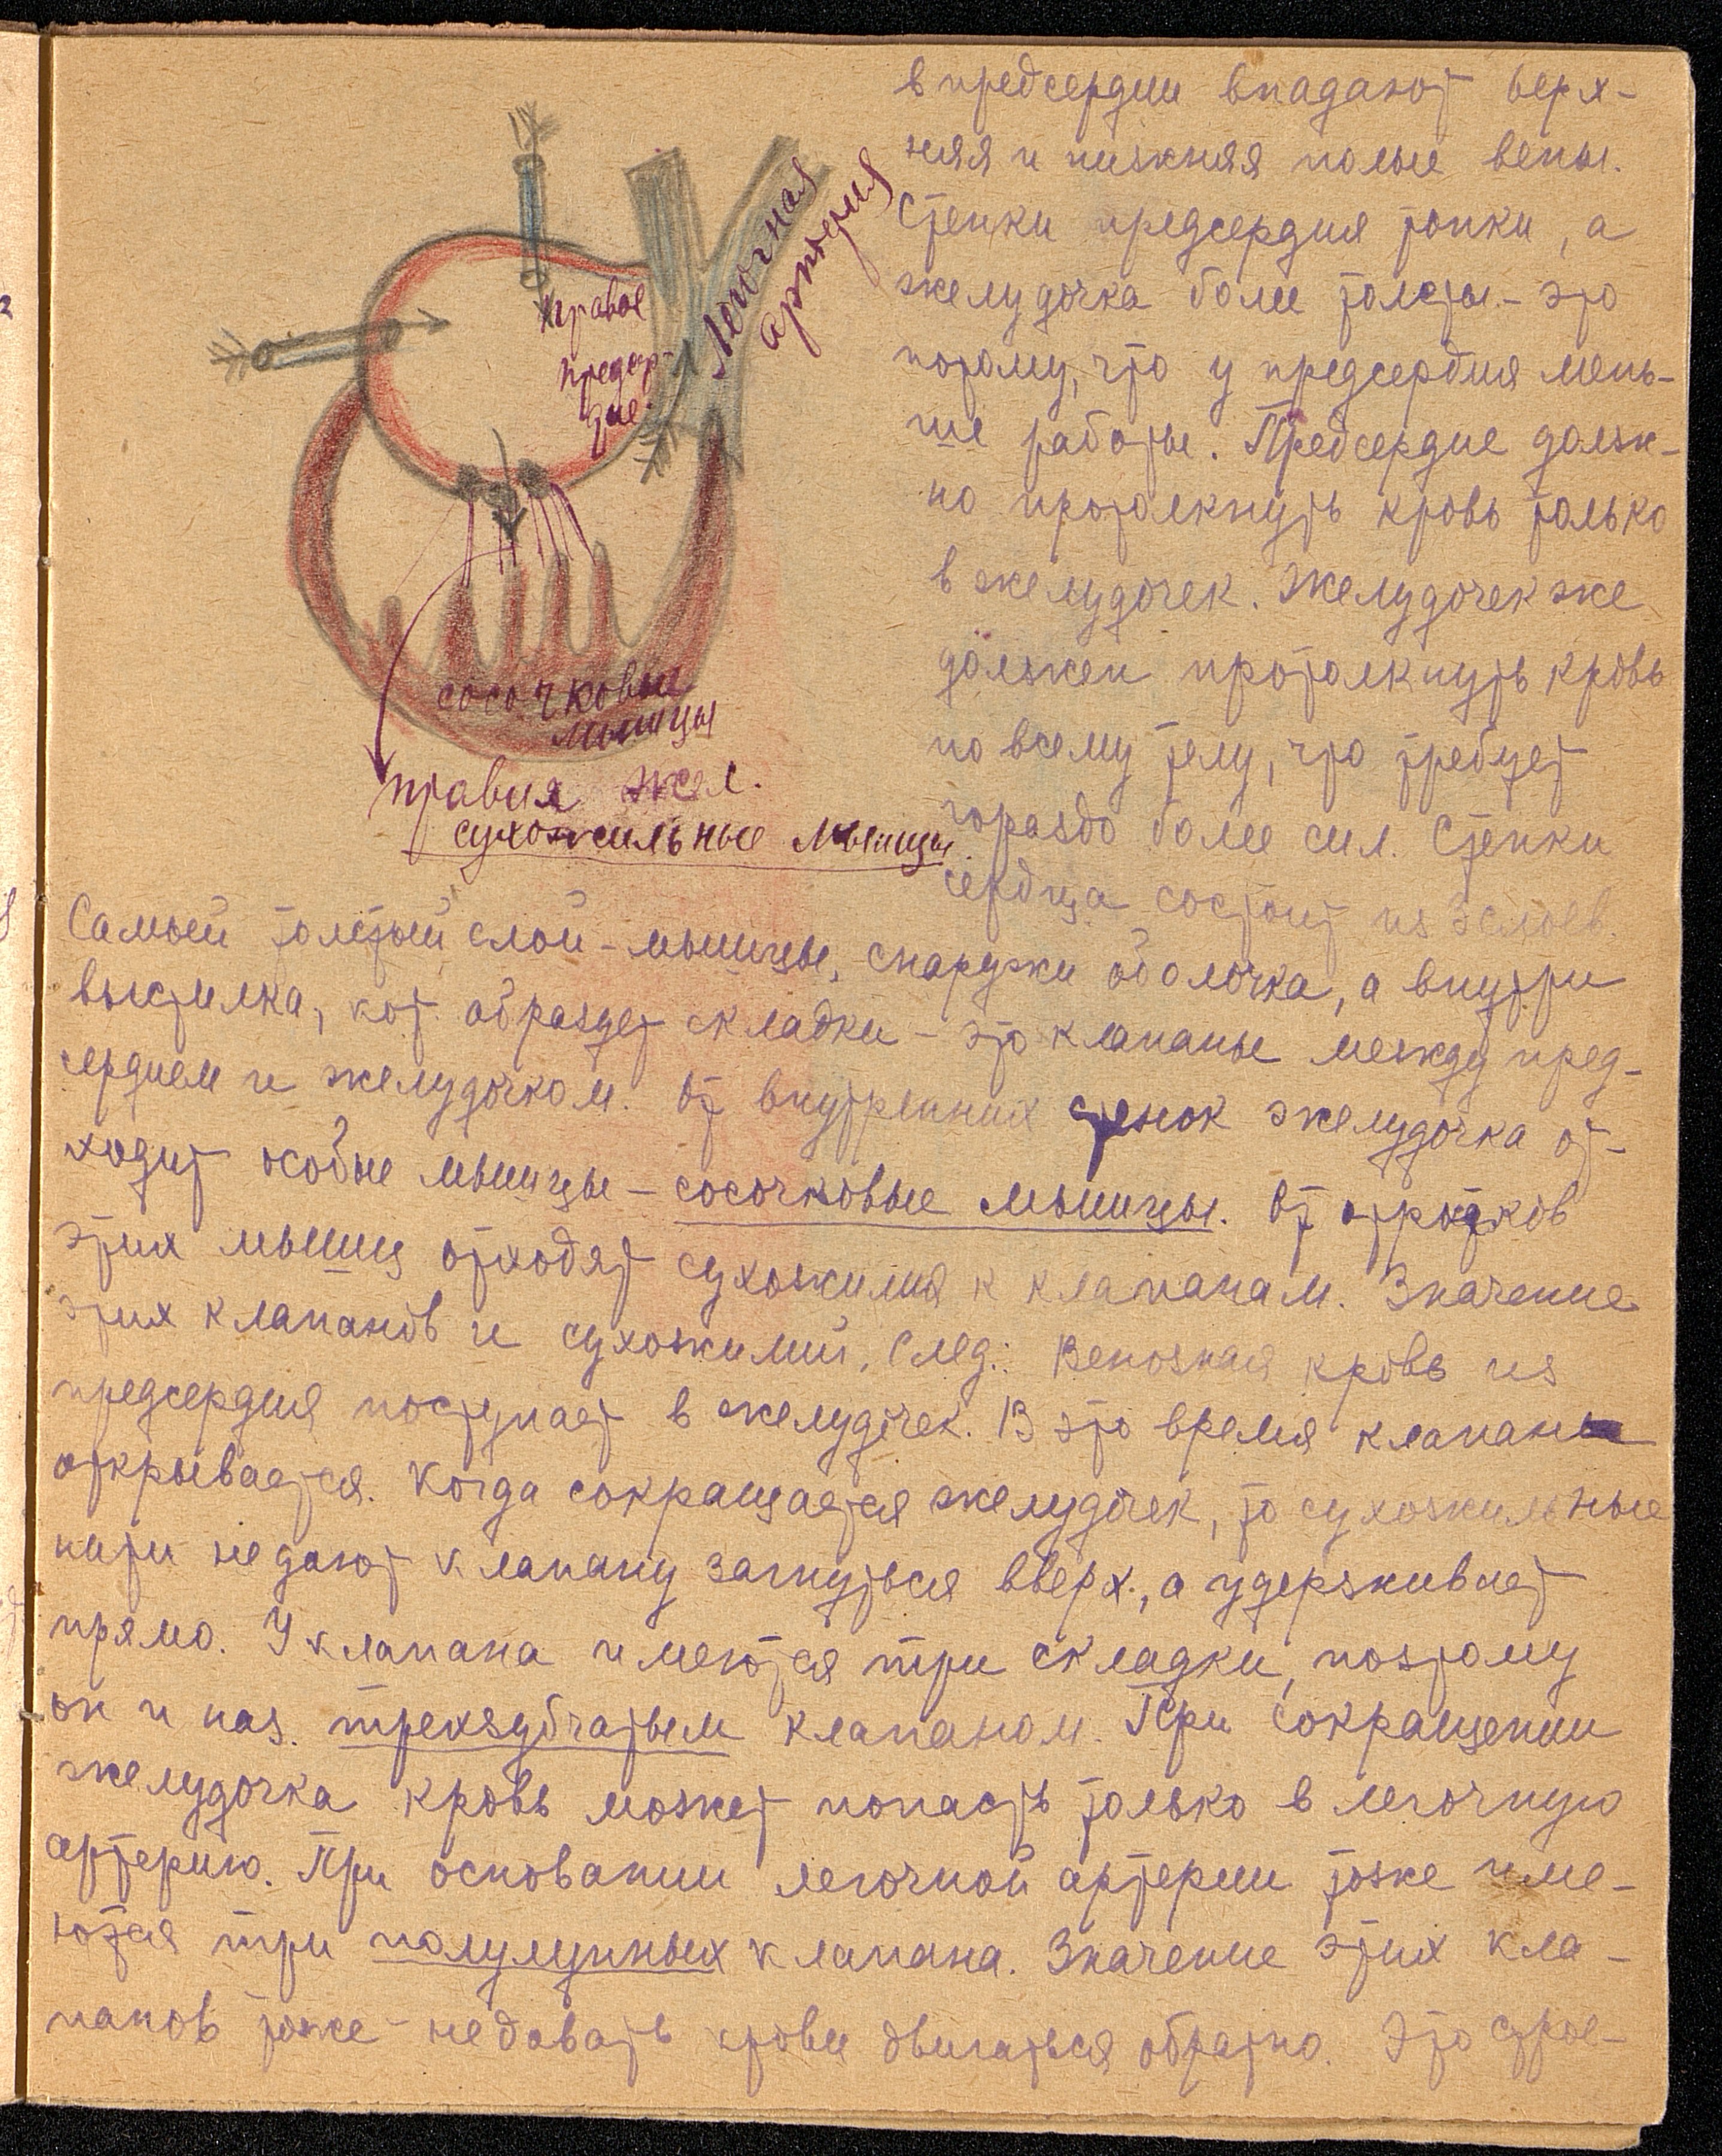 в предсердии впадают верх-
няя и нижняя полые вены.
Стенки предсердия тонки, а
желудочка более толсты - это
потому, что у предсердия мень-
ше работы. Предсердие долж-
но протолкнуть кровь только
в желудочек. Желудочек же
должен протолкнуть кровь
по всему телу, что требует
гораздо более сил. Стенки
сердца состоит из 3 слоев.
правое
предсер-
дие.
Легочная
артерия
сосочковые
мышцы
правия жел.
сухожильные мышцы.
Самый толстый слой - мышцы, снаружи оболочка, а внутри
выстилка, кот. образует складки - это клапаны между пред-
сердием и желудочком. От внутренних стенок желудочка от-
ходит особые мышцы - сосочковые мышцы. От отростков
этих мышц отходят сухожилия к клапанам. Значение
этих клапанов и сухожилий, след.: Венозная кровь из
предсердия поступает в желудочек. В это время клапан
открывается. Когда сокращается желудочек, то сухожильные
нити не дают клапану загнуться вверх, а удерживает
прямо. У клапана имеются три складки, поэтому
он и наз. трехзубчатым клапаном. При сокращении
желудочка кровь может попасть только в легочную
артерию. При основании легочной артерии тоже име-
ются три полулунных клапана. Значение этих кла-
панов тоже - не давать крови двигаться обратно. Это строе-